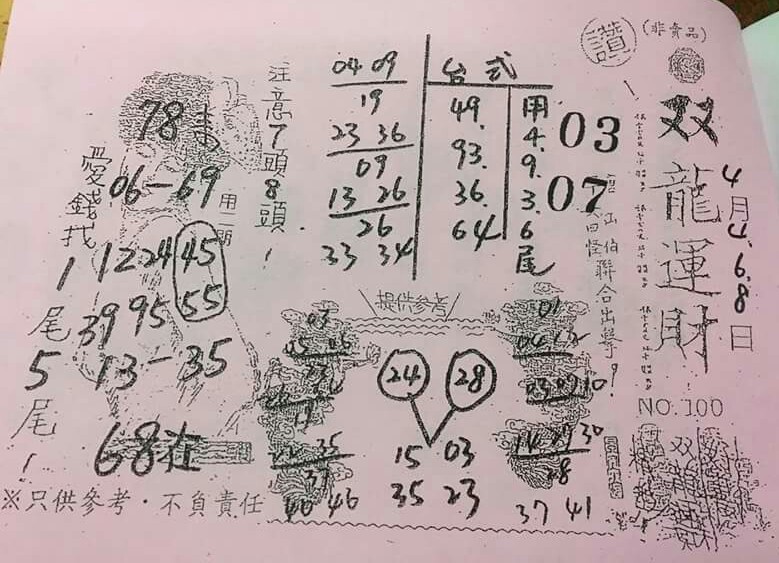 (非賣品)
讚
双龍運財
4月4.6.8日
NO.100
03
07
聯合出擊!
台式
49.
93.
36.
64
用4.9.3.6尾
04 09
19
23 36
09
13 26
26
33 34
注意7頭8頭!
78來
06-69
用二期
12 24 45
39 95 55
13-35
68在
愛錢找1尾5尾!
提供參考
24 28
15 03
35 23
03
05 06
35
37
46 46
01
04 12
03 09 10
14 29 30
28
37 41
※只供參考·不負責任